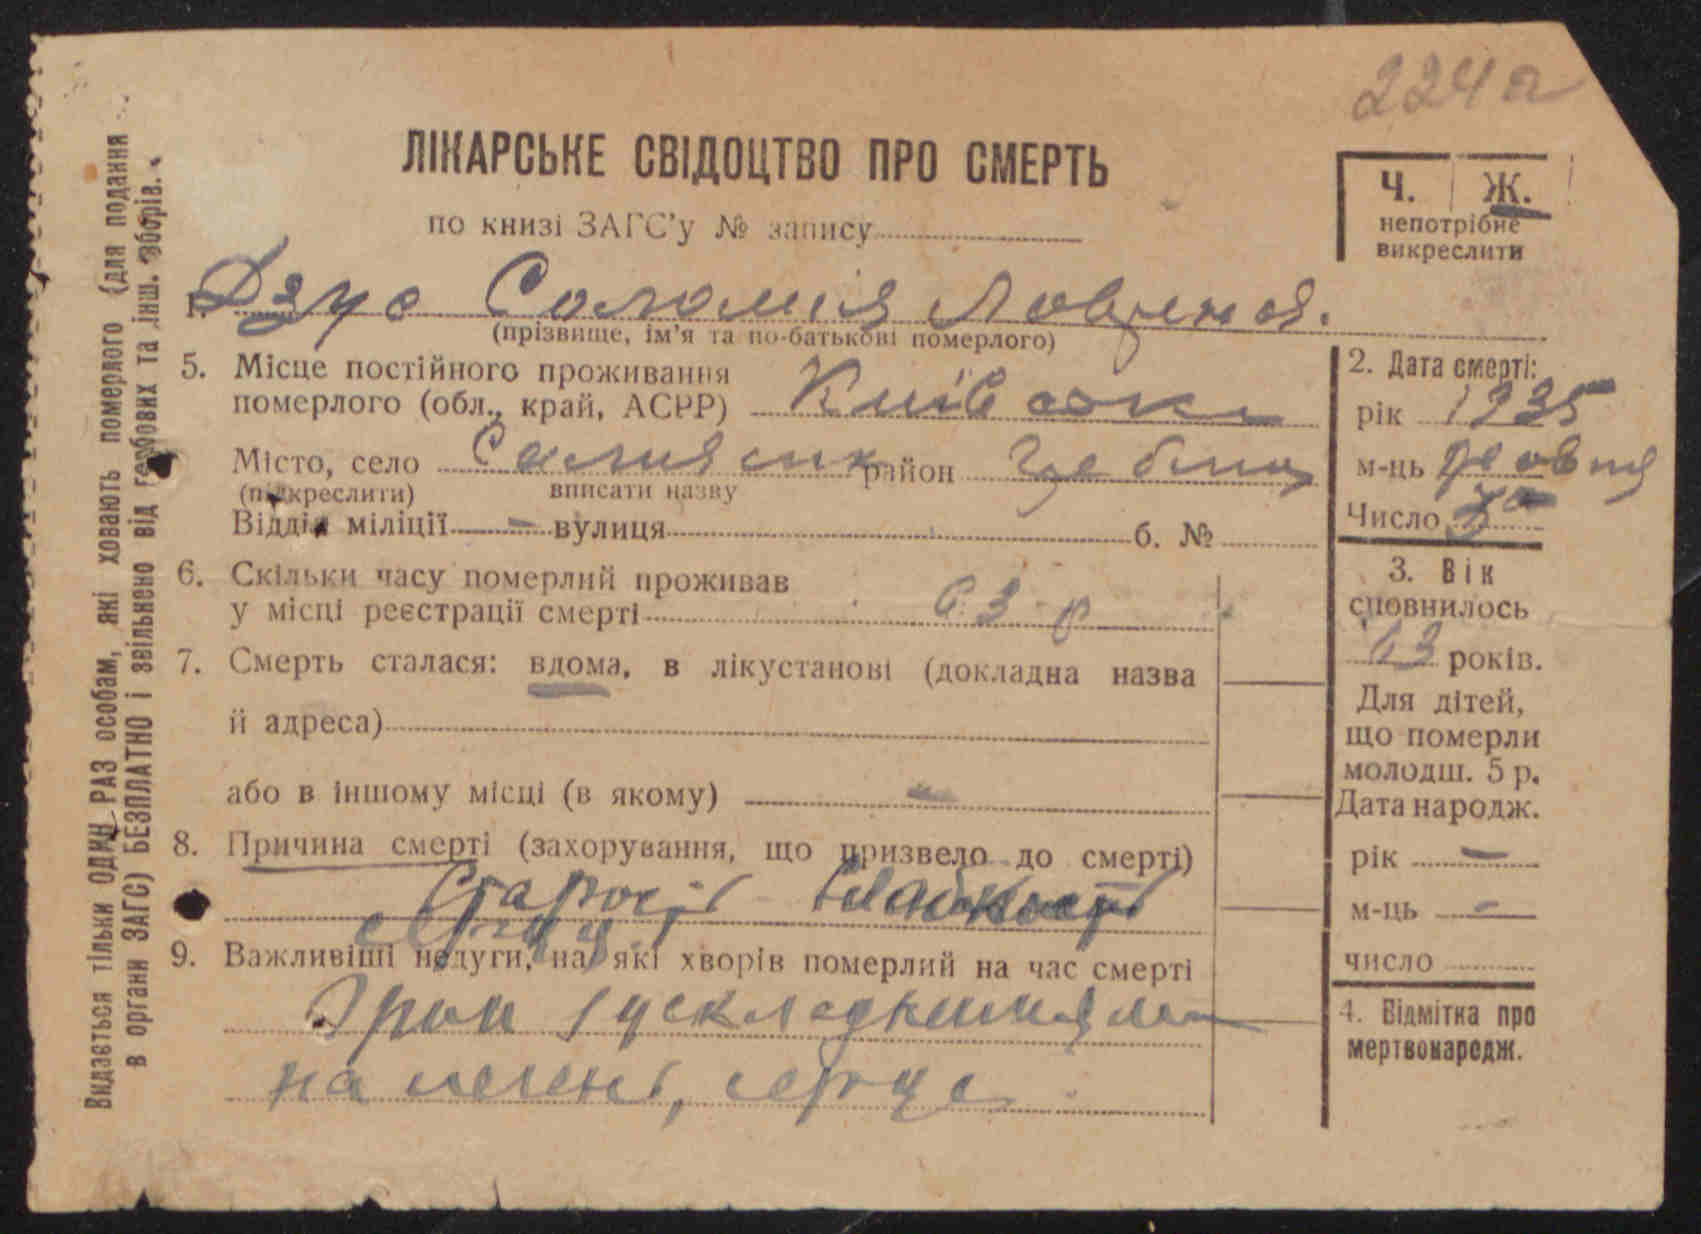 224
ЛІКАРСЬКЕ СВІДОЦТВО ПРО СМЕРТЬ
Ч. Ж.
непотрібне
викреслити
по книзі ЗАГС'у № запису
1. Дзус Соломія
(прізвище, ім'я та по-батькові померлого)
5. Місце постійного проживання
померлого (обл., край, АСРР) Київська
Місто, село район Гребінка
(підкреслити) вписати назву
Відділ міліції - вулиця б. №
6. Скільки часу померлий проживав
у місці реєстрації смерті 63 р
7. Смерть сталася: вдома, в лікустанові (докладна назва
й адреса)
або в іншому місці (в якому) -
8. Причина смерті (захорування, що призвело до смерті)
Старість слабкість
серця
9. Важливіші недуги, на які хворів померлий на час смерті
Грип з ускладненням
на легені, серце
2. Дата смерті:
рік 1935
м-ць Жовтня
Число
3. Вік
сповнилось
63 років.
Для дітей,
що померли
молодш. 5 р.
Дата народж.
рік -
м-ць -
число
4. Відмітка про
мертвонародж.
Видається тільки ОДИН РАЗ особам, які ховають померлого (для подання
в органи ЗАГС) БЕЗПЛАТНО і звільнено від гербових та інш. зборів.